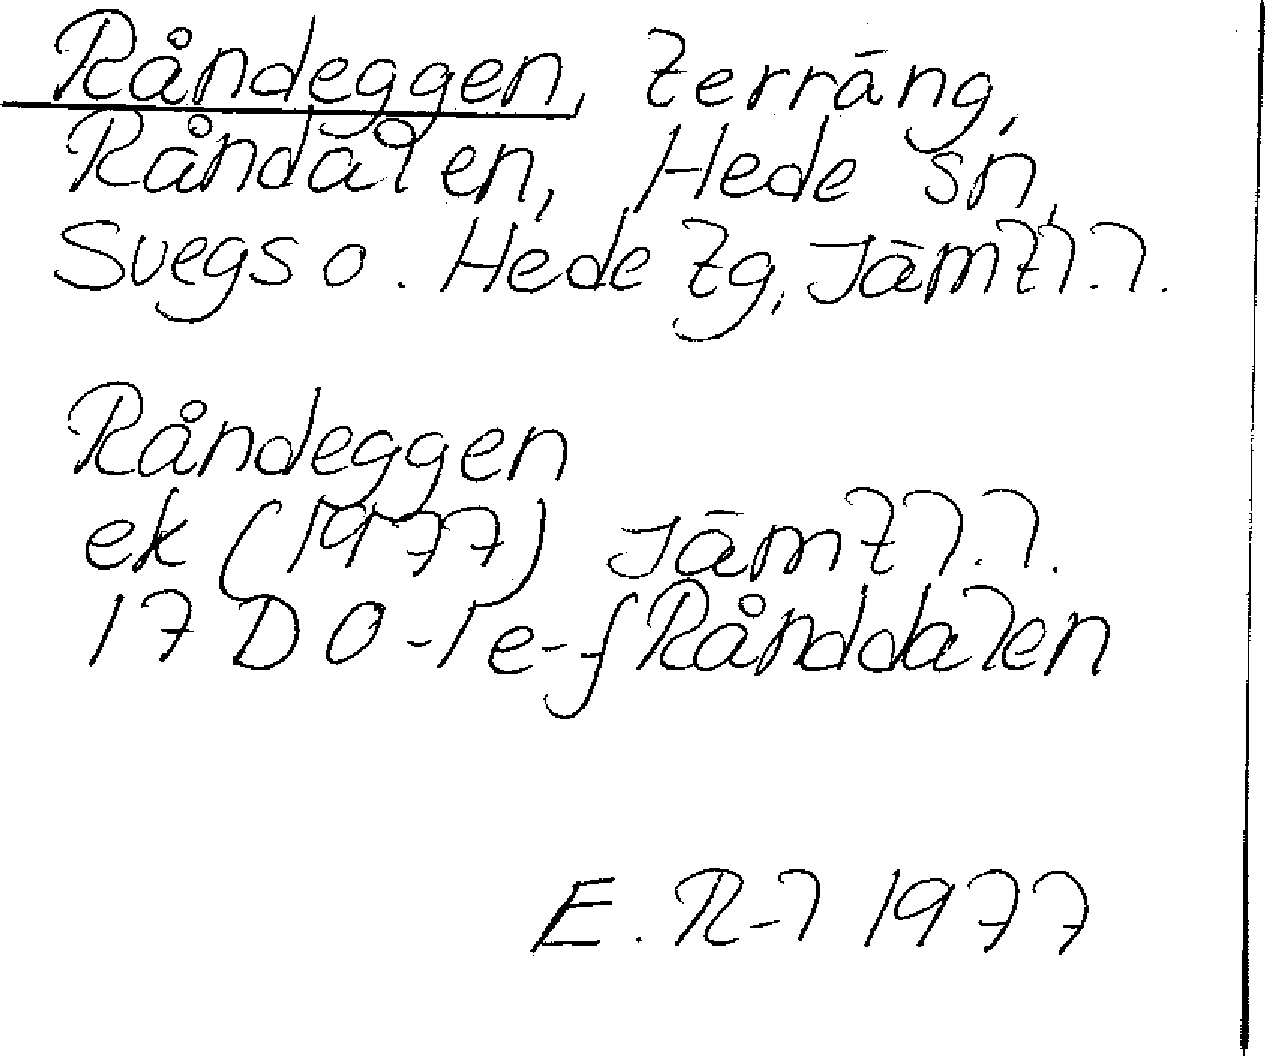 Råndeggen, terräng,
Råndalen, Hede sn,
Svegs o. Hede tg, Jämtl. l.
Råndeggen
ek (1977) Jämtl. l.
17 D 0-1 e-f Rånddalen
E. R-l 1977